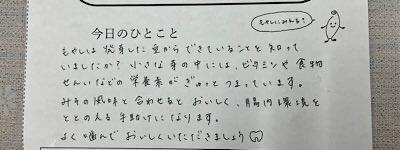 今日のひとこと
もやしにみえる?
もやしは発芽した豆からできていることを知って
いましたか?小さな芽の中には、ビタミンや食物
せんいなどの栄養素がぎゅっとつまっています。
みその風味と合わせるとおいしく、腸内環境を
ととのえる手助けになります。
よく噛んでおいしくいただきましょう